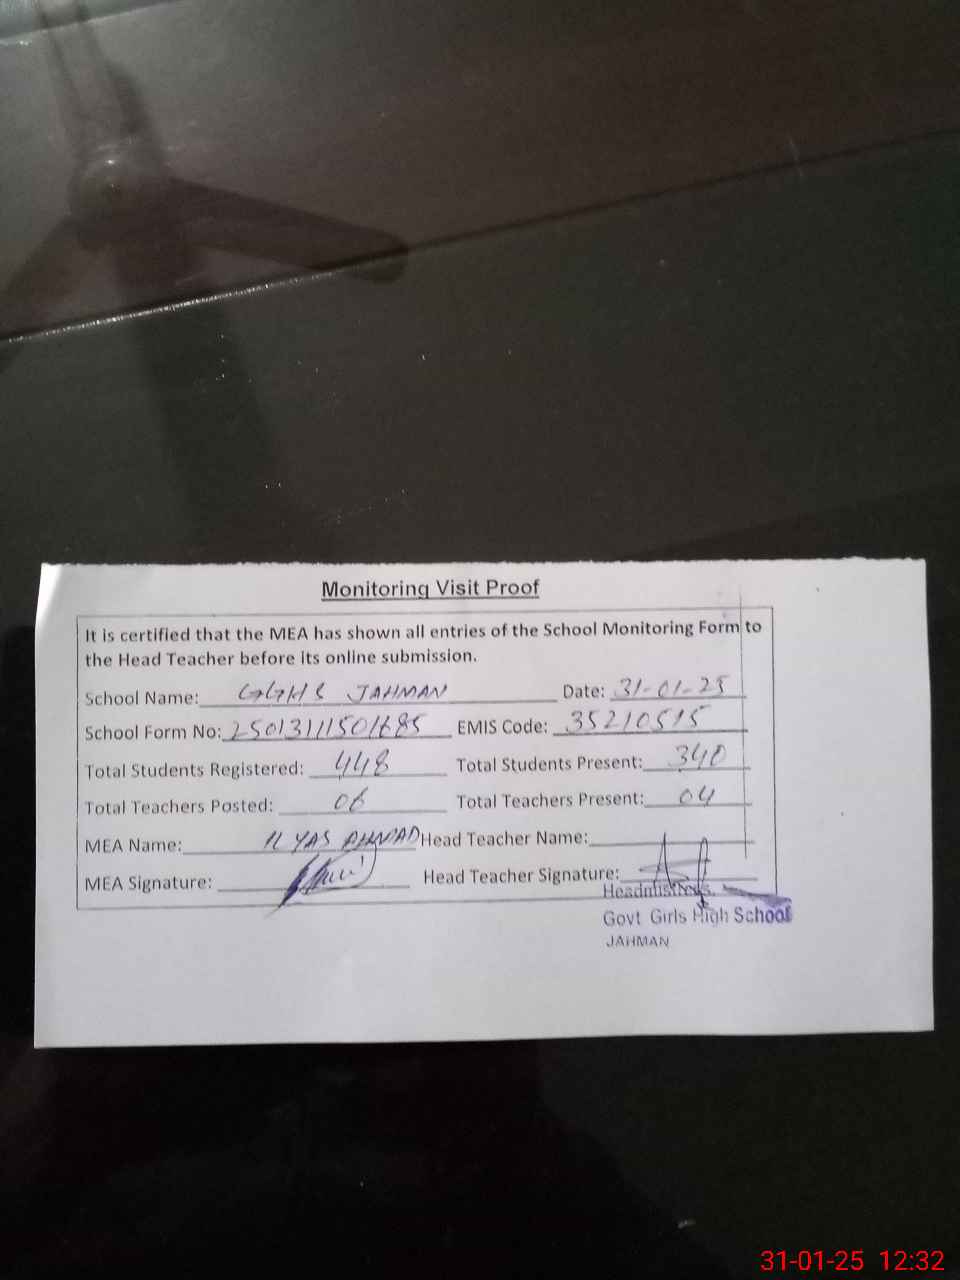 Monitoring Visit Proof
It is certified that the MEA has shown all entries of the School Monitoring Form to
the Head Teacher before its online submission.
School Name: GGHS JAHMAN Date: 31-01-25
School Form No: 25013111501685 EMIS Code: 35210515
Total Students Registered: 448 Total Students Present: 340
Total Teachers Posted: 06 Total Teachers Present: 04
MEA Name: ILYAS AHMAD Head Teacher Name:
MEA Signature: Head Teacher Signature:
Headmistress.
Govt Girls High School
JAHMAN
31-01-25 12:32